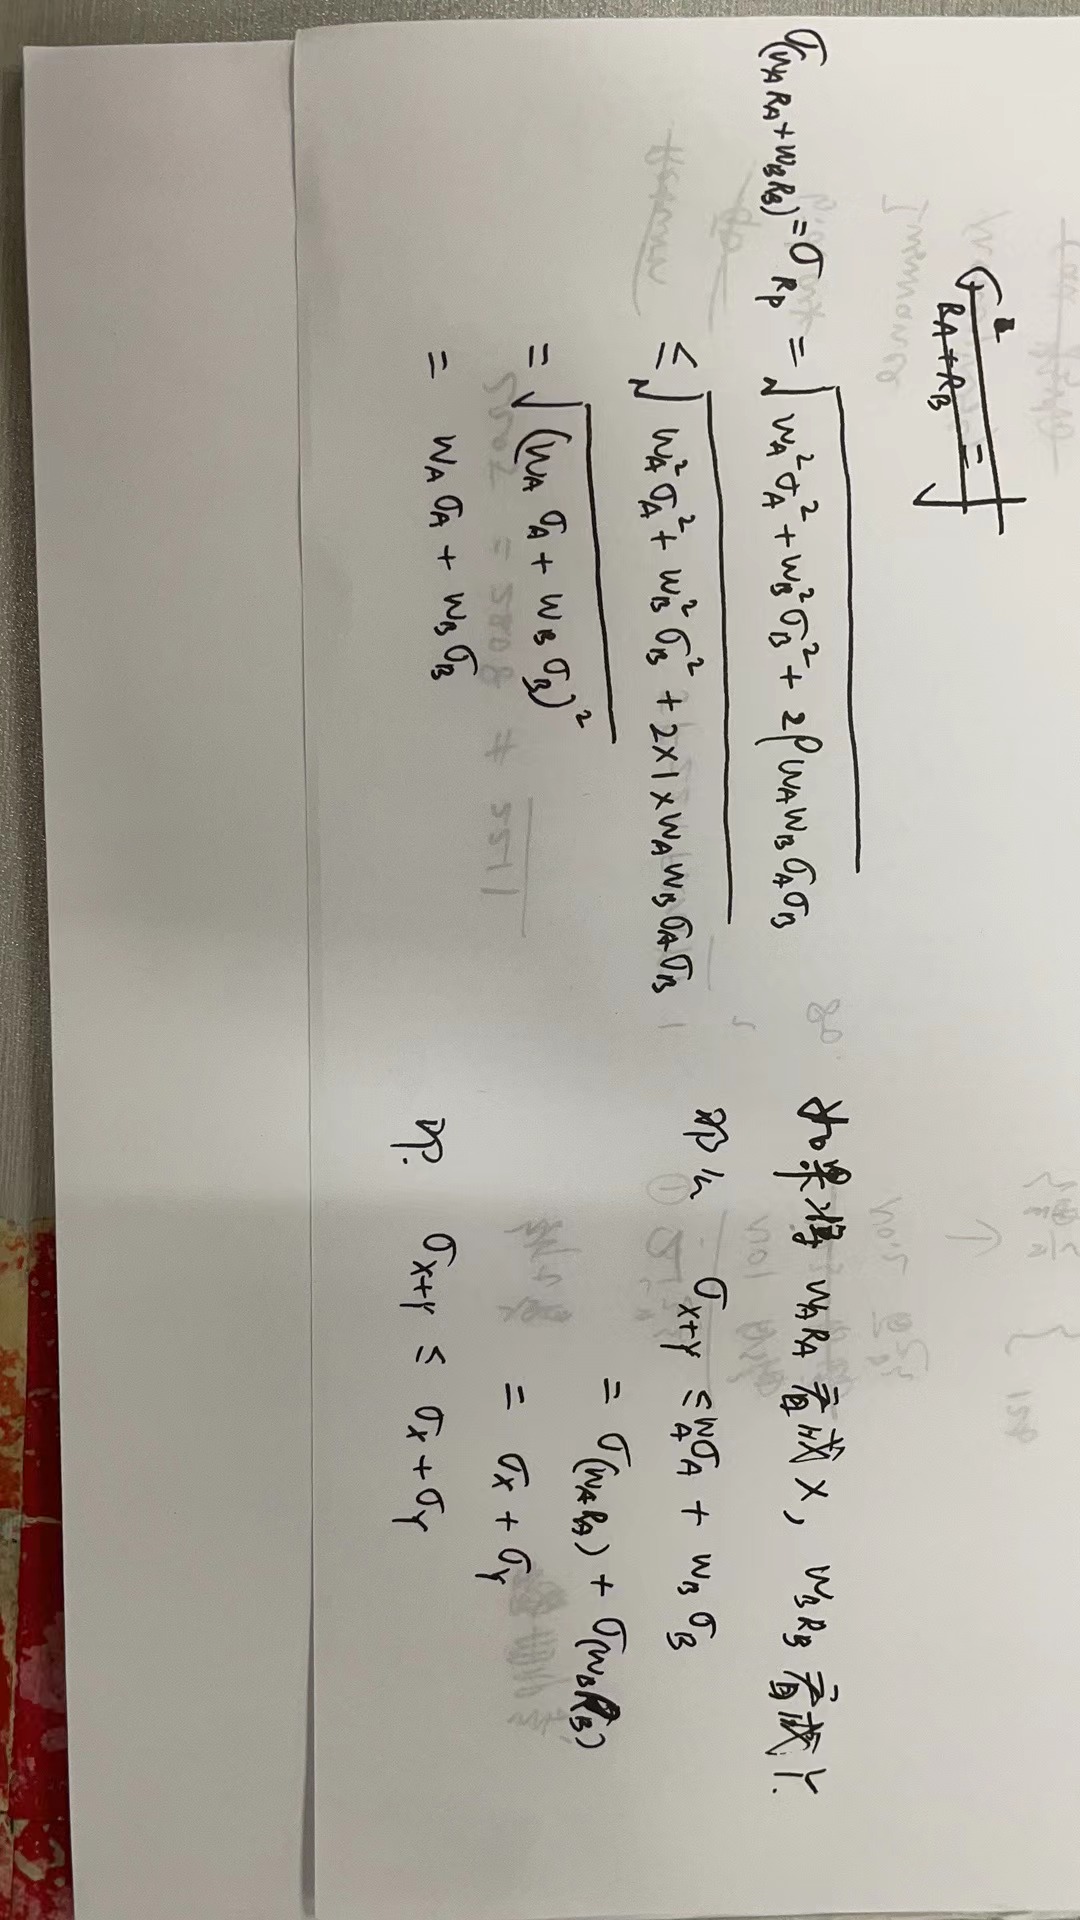 σ²_{RA+RB} = √
σ_{(wARA+wBRB)} = σ_{Rp} = √(wA²σA² + wB²σB² + 2ρwAwBσAσB)
≤ √(wA²σA² + wB²σB² + 2×1×wAwBσAσB)
= √(wAσA + wBσB)²
= wAσA + wBσB
如果将 wARA 看成 X, wBRB 看成 Y.
那么 σ_{X+Y} ≤ wAσA + wBσB
= σ(wARA) + σ(wBRB)
= σX + σY
即. σ_{X+Y} ≤ σX + σY